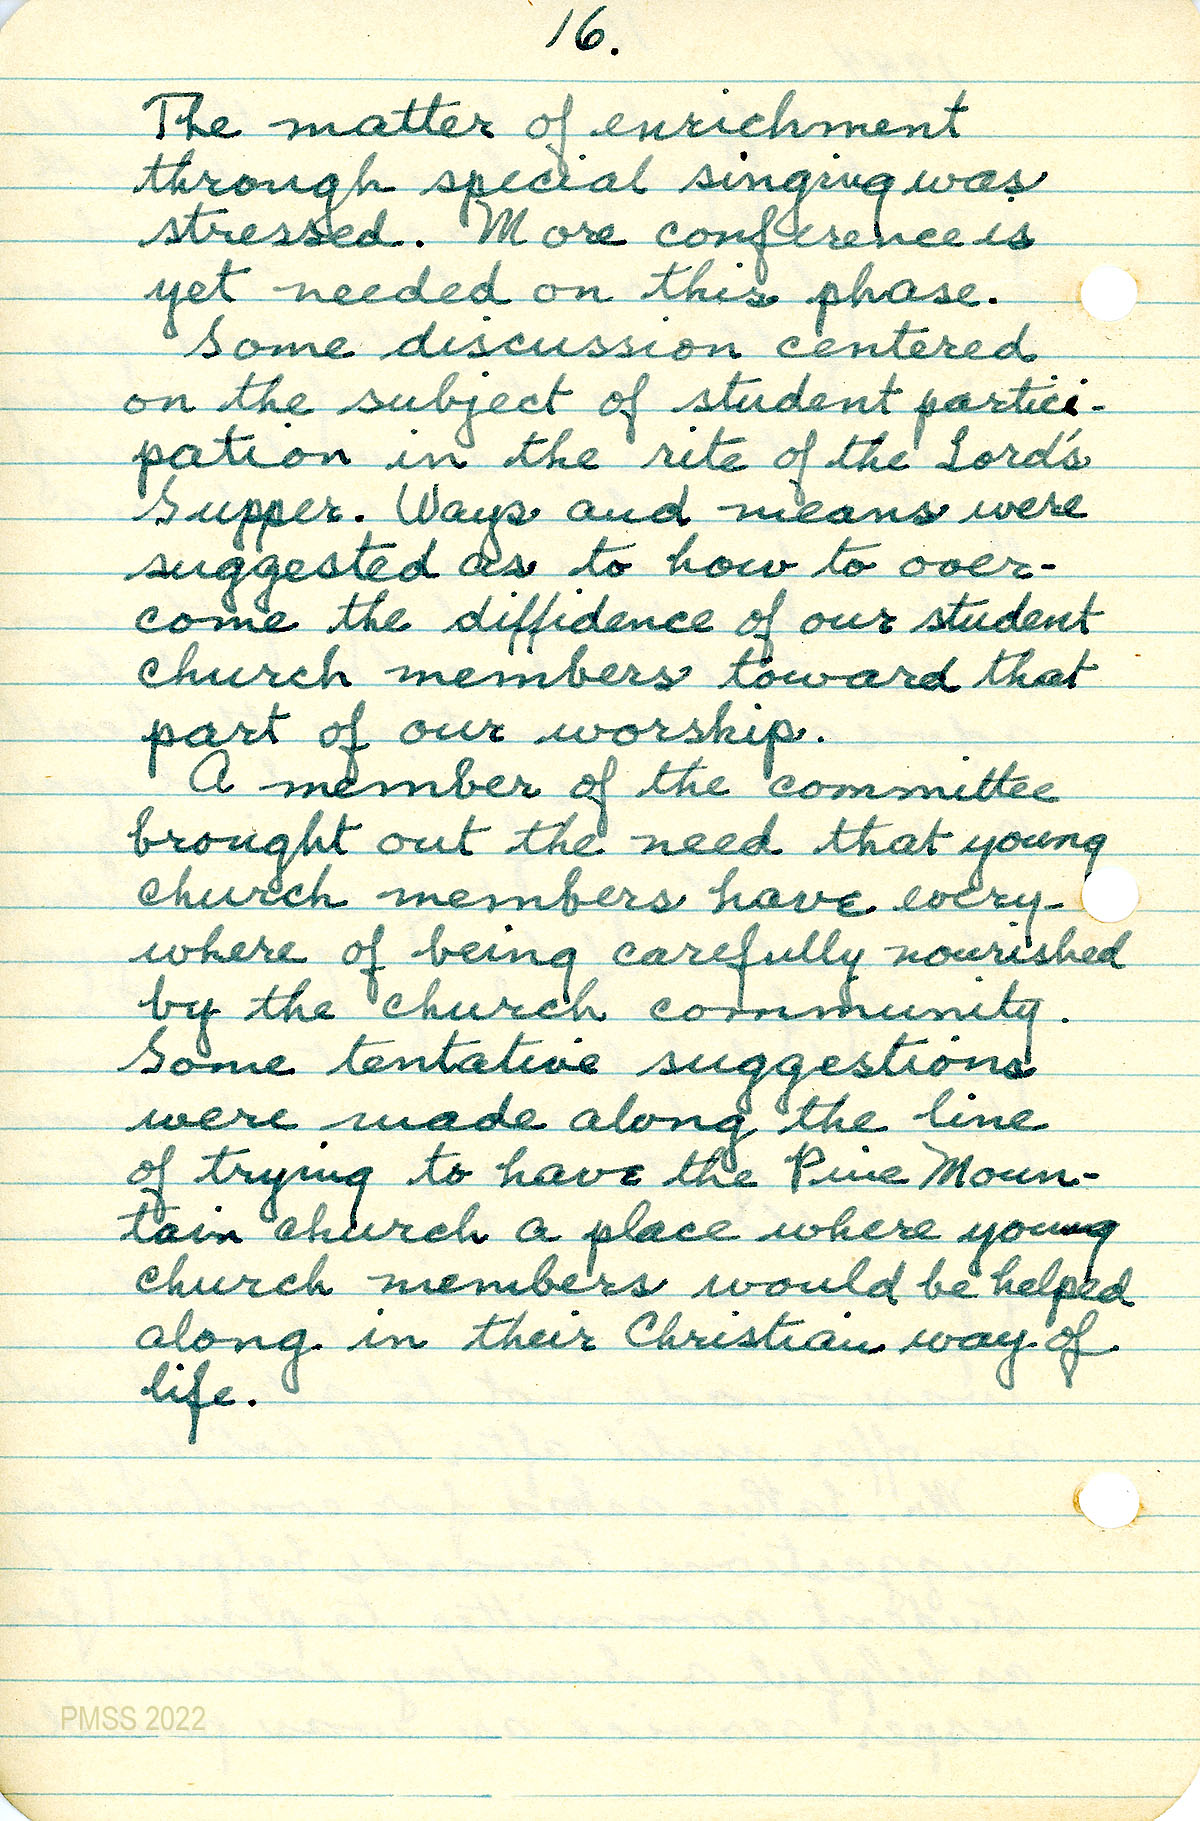 16.
The matter of enrichment
through special singing was
stressed. More conference is
yet needed on this phase.
Some discussion centered
on the subject of student partici-
pation in the rite of the Lord's
Supper. Ways and means were
suggested as to how to over-
come the diffidence of our student
church members toward that
part of our worship.
A member of the committee
brought out the need that young
church members have every-
where of being carefully nourished
by the church community.
Some tentative suggestions
were made along the line
of trying to have the Pine Moun-
tain church a place where young
church members would be helped
along in their Christian way of
life.
PMSS 2022